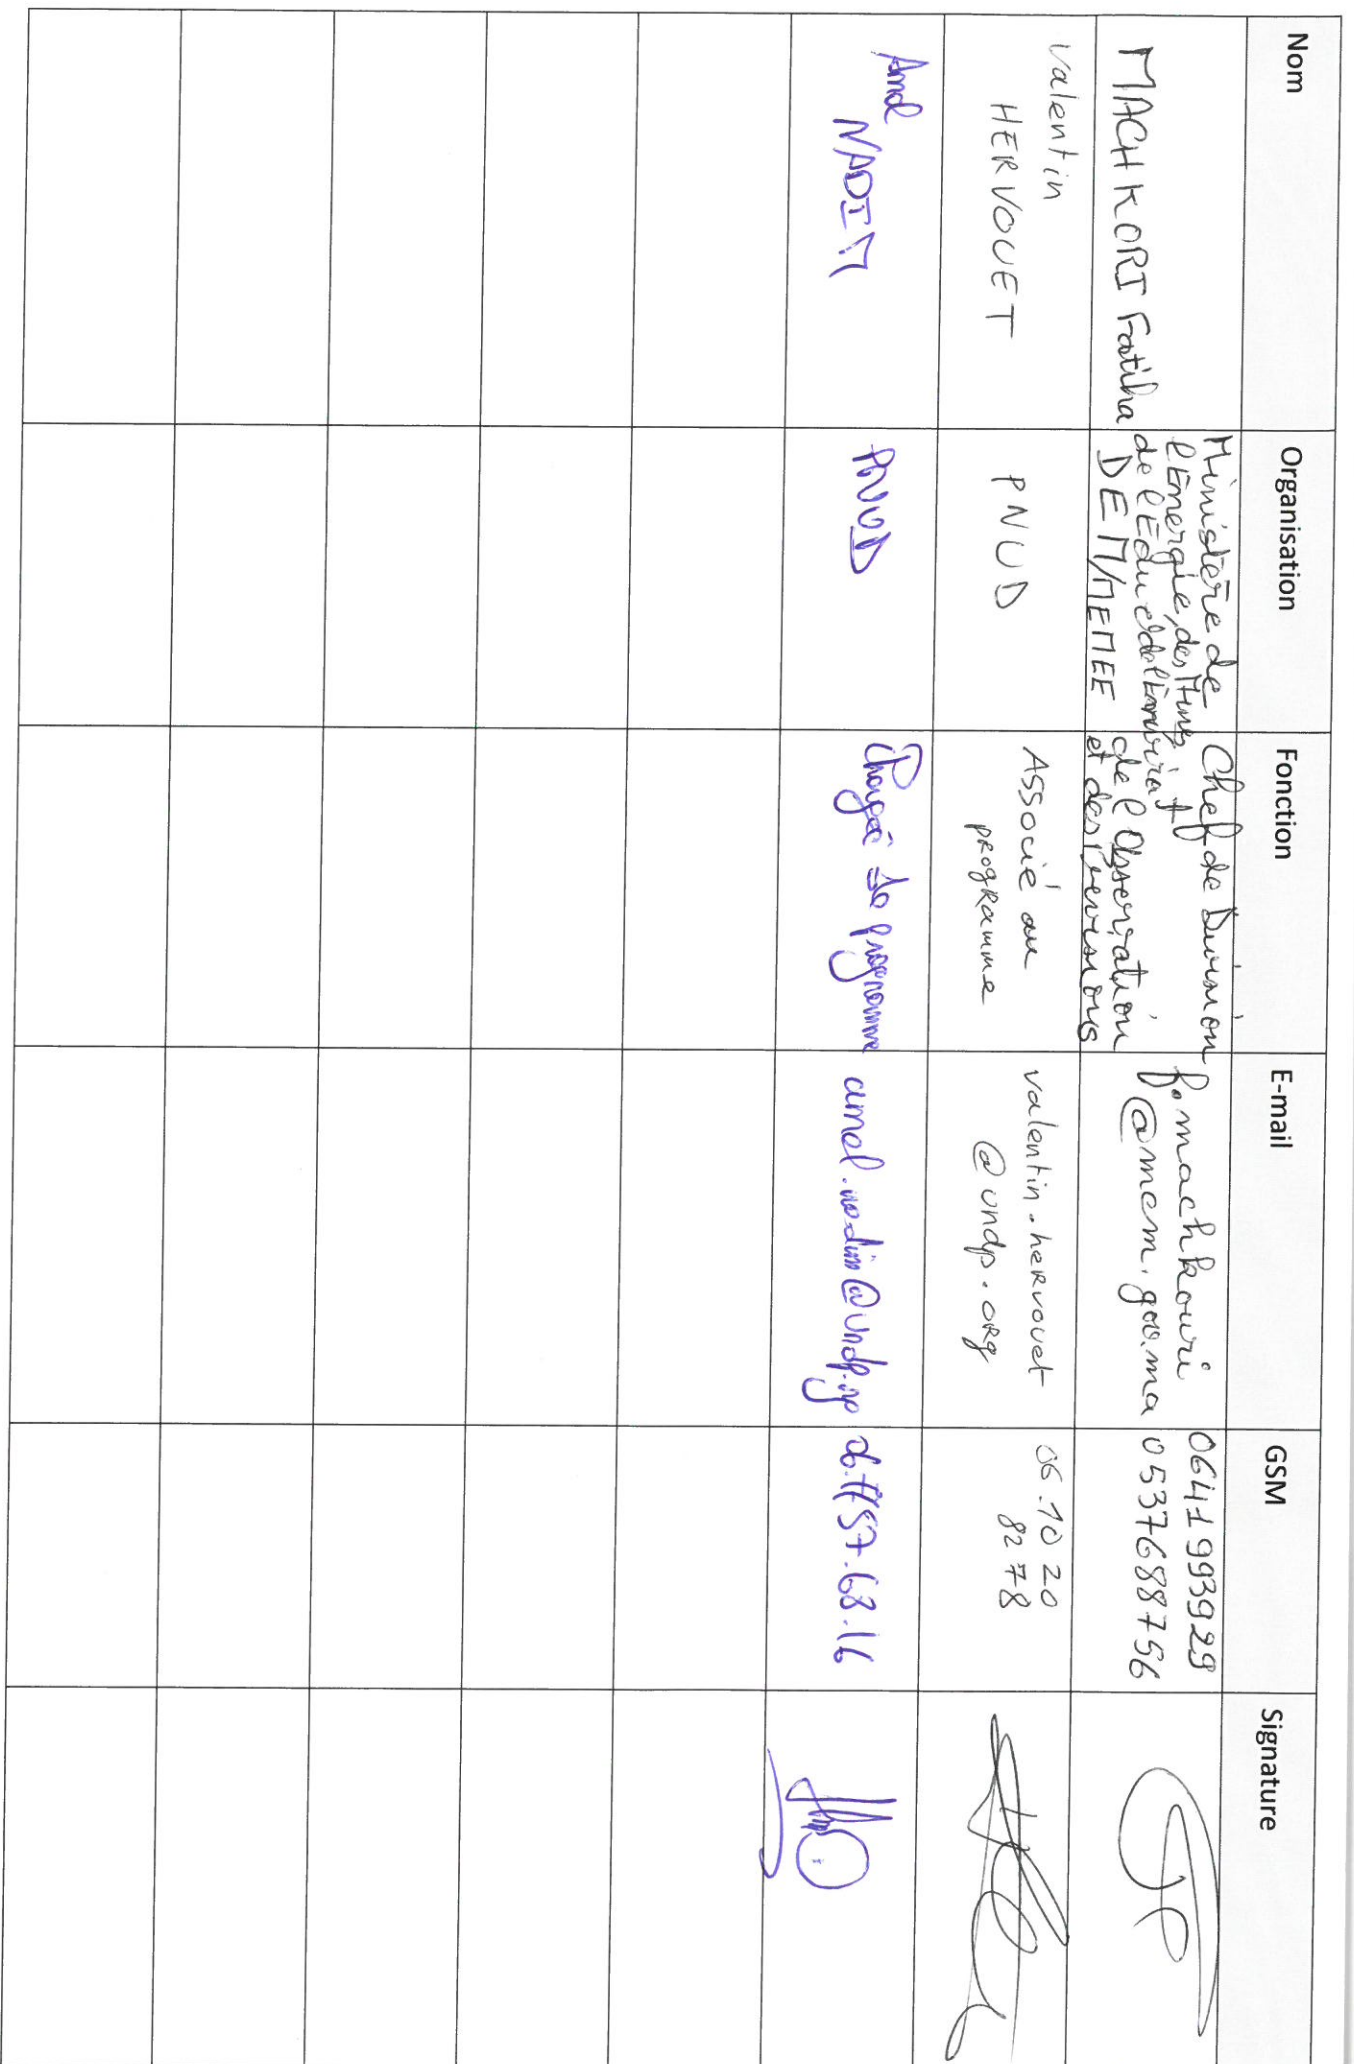 Nom Organisation Fonction E-mail GSM Signature
MACHKORI Fatiha
Ministère de
l'Energie, des Mines
de l'Eau et de l'Environ^t
DEM/MEMEE
Chef de Division
de l'Observation
et des Prévisions
f.machkouri
@mem.gov.ma
0641993929
0537688756
Valentin
HERVOUET
PNUD
Associé au
programme
valentin.hervouet
@undp.org
06.10 20
82 78
Amal
NADIM
PNUD
Chargée de programme
amal.nadim@undp.org